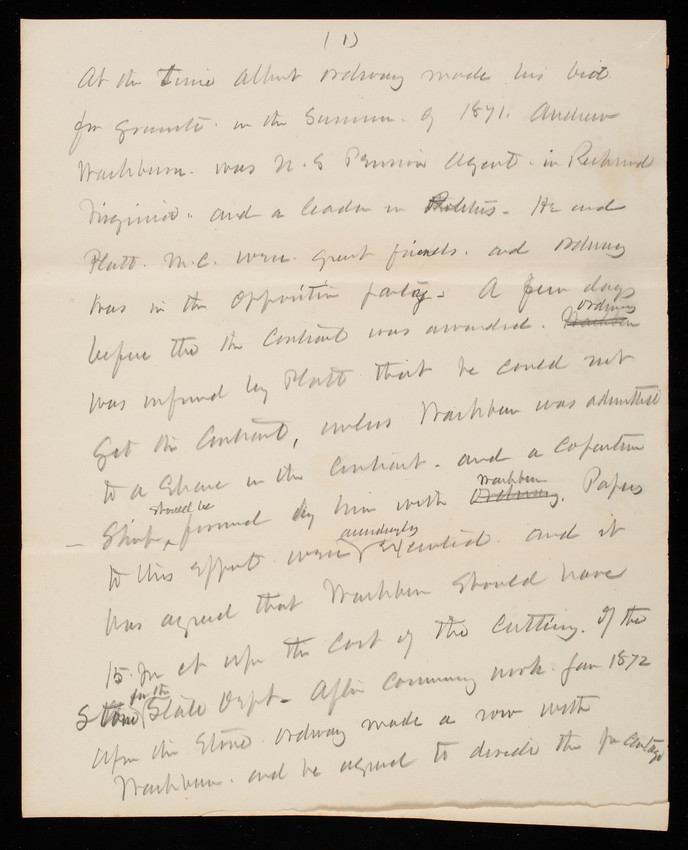 (1)
At the time Albert Ordway made his bid
for granite. in the Summer. of 1871. Andrew
Washburn. was U.S Pension Agent. in Richmond
Virginia. and a leader in Politics. He and
Platt. M.C. were great friends. and Ordway
was in the opposition party. A few days
Ordway
before the the contract was awarded. Washburn
was informed by Platt that he could not
get the contract, unless Washburn was admitted
to a share in the contract. and a copartner
should be Washburn
ship formed by him with Ordway. Papers
accordingly
to this effect were executed. and it
was agreed that Washburn should have
15. per ct upon the cost of the cutting. of the
for the
Stone State Dept. After commencing work. Jan 1872
upon the Stone. Ordway made a row with
Washburn. and he agreed to divide the percentage